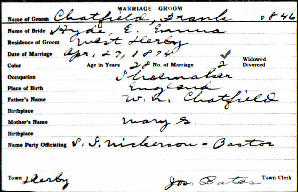 MARRIAGE GROOM
Name of Groom Chatfield, Frank #846
Name of Bride Hyde, E. Emma
Residence of Groom West Derby
Date of Marriage Apr. 27, 1874
Color Age in Years 28 No. of Marriage 2 Widowed Divorced
Occupation Shoemaker
Place of Birth England
Father's Name W. H. Chatfield
Birthplace
Mother's Name Mary S
Birthplace
Name Party Officiating S. S. Nickerson - Pastor
Town Derby Jos. Bates Town Clerk